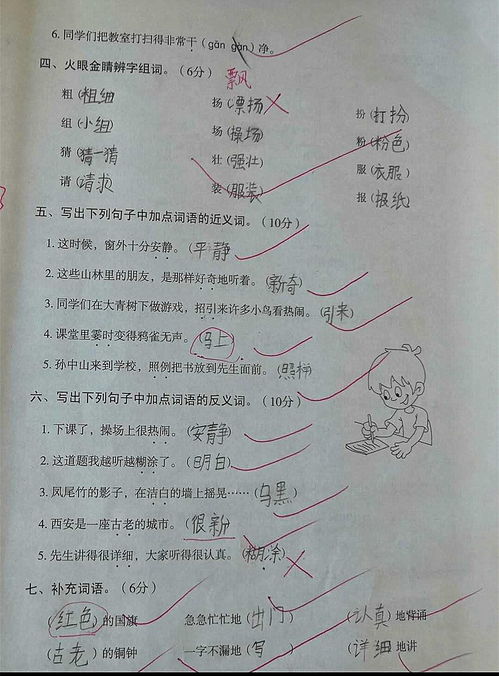 6. 同学们把教室打扫得非常干（gān gàn）净。
四、火眼金睛辨字组词。（6分） 飘
粗（粗细 扬（漂扬 扮（打扮）
组（小组 场（操场 粉（粉色）
猜（猜一猜 壮（强壮 服（衣服）
请（请求 装（服装） 报（报纸）
五、写出下列句子中加点词语的近义词。（10分）
1. 这时候，窗外十分安静。（平静
2. 这些山林里的朋友，是那样好奇地听着。（新奇）
3. 同学们在大青树下做游戏，招引来许多小鸟看热闹。（引来）
4. 课堂里霎时变得鸦雀无声。（马上）
5. 孙中山来到学校，照例把书放到先生面前。（照样
六、写出下列句子中加点词语的反义词。（10分）
1. 下课了，操场上很热闹。（安静）
2. 这道题我越听越糊涂了。（明白）
3. 凤尾竹的影子，在洁白的墙上摇晃……（乌黑）
4. 西安是一座古老的城市。（很新）
5. 先生讲得很详细，大家听得很认真。（糊涂）
七、补充词语。（6分）
（红色）的国旗 急急忙忙地（出门） （认真）地背诵
（古老）的铜钟 一字不漏地（写） （详细 地讲